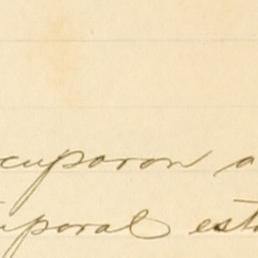 cuparon a
mporal est